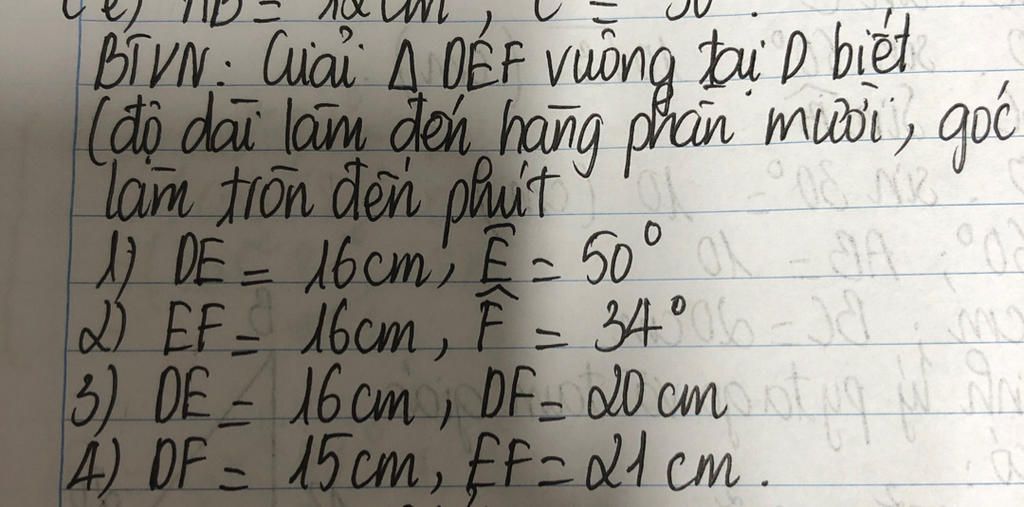 e) AB = 12cm, C = 30°.
BTVN: Giải Δ DEF vuông tại D biết
(độ dài làm đến hàng phần mười, góc
làm tròn đến phút
1) DE = 16cm, Ê = 50°
2) EF = 16cm, F̂ = 34°
3) DE = 16cm, DF = 20 cm
4) DF = 15cm, EF = 21 cm.